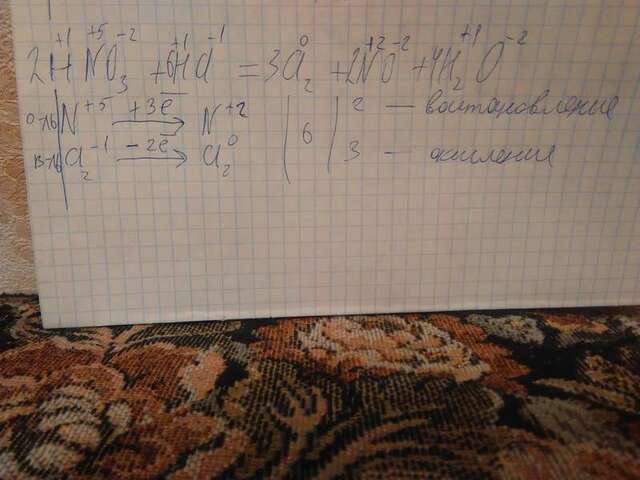 2H⁺¹N⁺⁵O₃⁻² + 6H⁺¹Cl⁻¹ = 3Cl₂⁰ + 2N⁺²O⁻² + 4H₂⁺¹O⁻²
о-ль N⁺⁵ +3e̅ → N⁺² | | 2 — восстановление
в-ль Cl₂⁻¹ -2e̅ → Cl₂⁰ | 6 | 3 — окисление